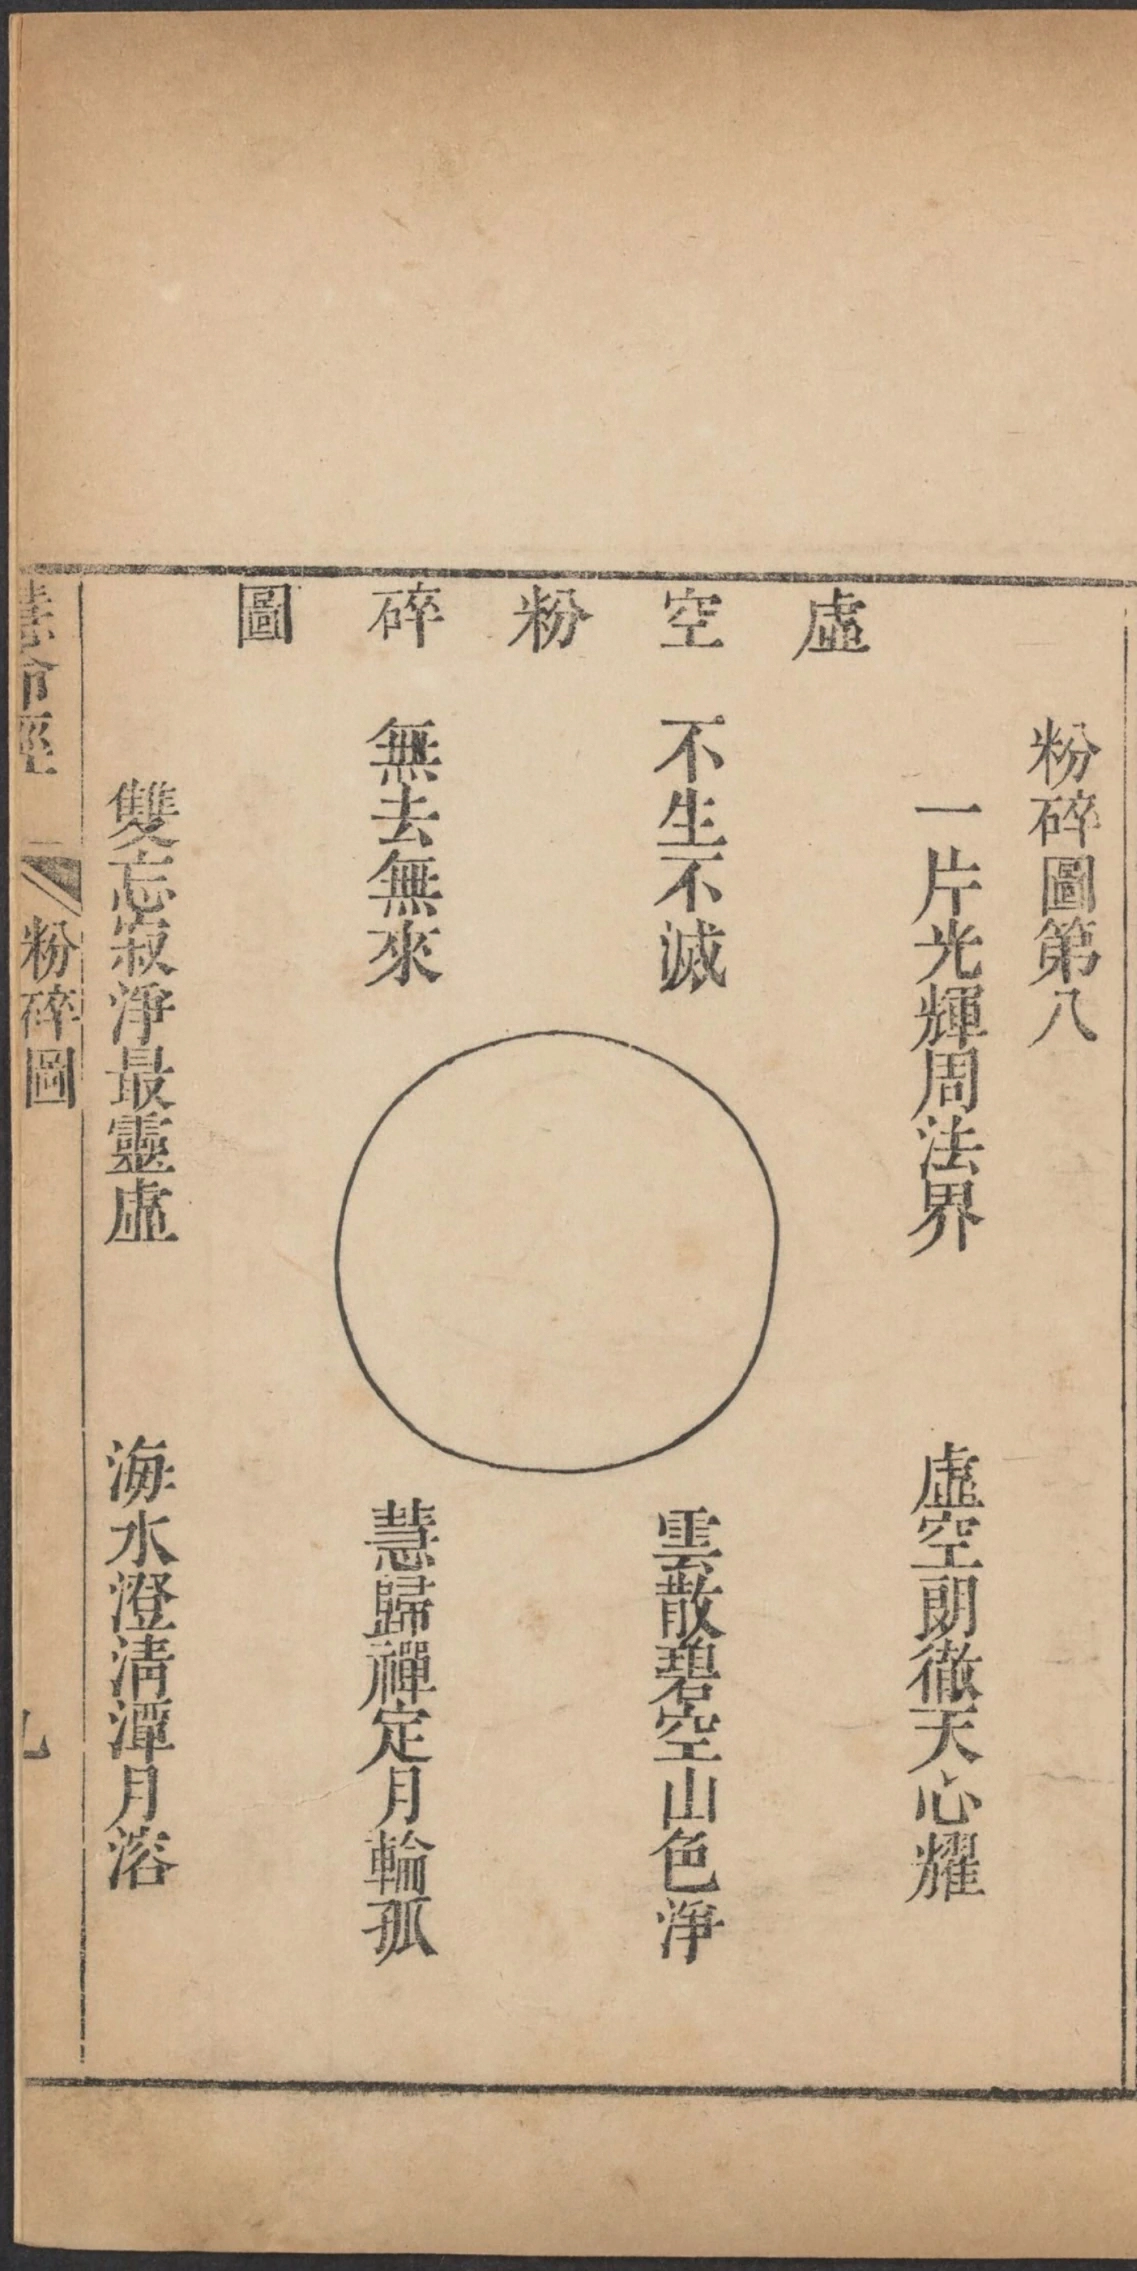 粉碎圖第八
一片光輝周法界
虛空朗徹天心耀
虛空粉碎圖
不生不滅
雲散碧空山色淨
無去無來
慧歸禪定月輪孤
雙忘寂淨最靈虛
海水澄清潭月溶
慧命經
粉碎圖
九